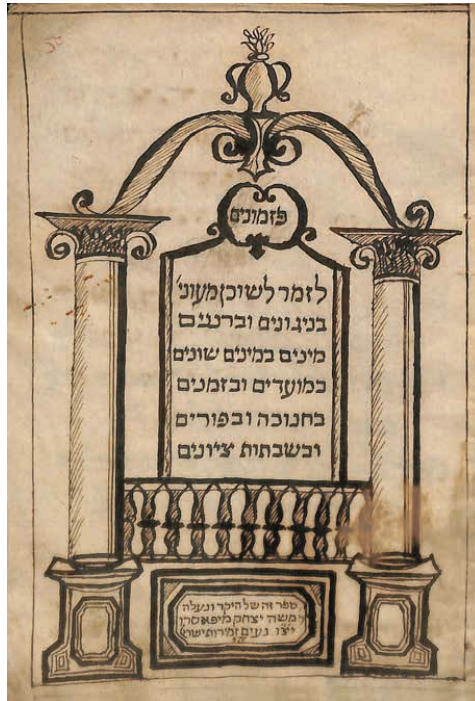 פזמונים
לזמר לשוכן מעוני׳
בניגונים וברננים
מינים במינים שונים
במועדים ובזמנים
בחנוכה ובפורים
ובשבתות ציונים
ספר זה של היקר ונעלה
משה יצחק
יצ״ו נעים זמירות ישראל